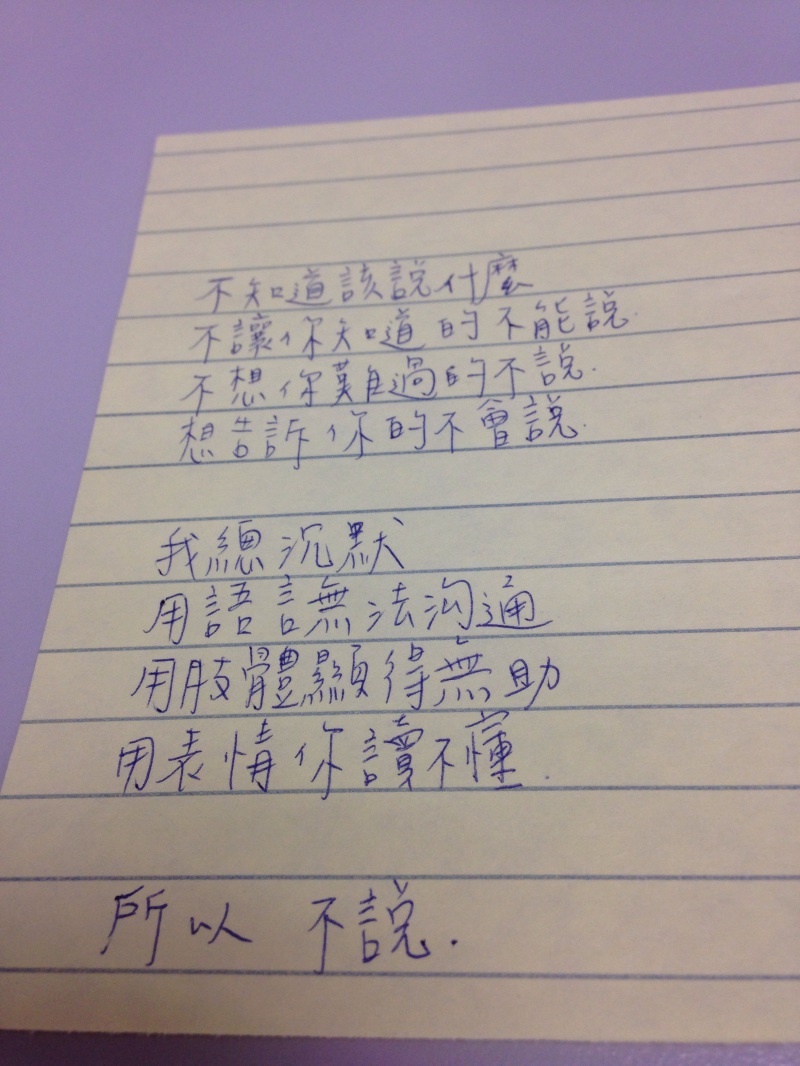 不知道該說什麼
不讓你知道的不能說.
不想你難過的不說.
想告訴你的不會說.
我總沉默
用語言無法沟通
用肢體顯得無助
用表情你讀不懂.
所以 不說.